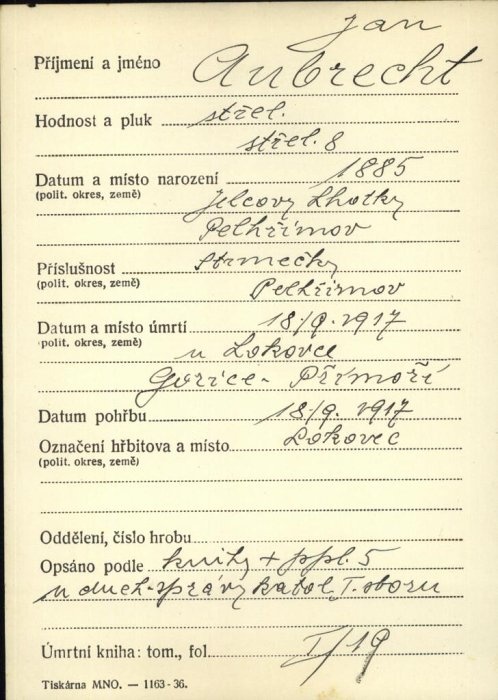 Jan
Příjmení a jméno Aubrecht
Hodnost a pluk střel.
střel. 8
Datum a místo narození 1885
(polit. okres, země) Jelcovy Lhotky
Pelhřimov
Příslušnost Strmečky
(polit. okres, země) Pelhřimov
Datum a místo úmrtí 18/9. 1917
(polit. okres, země) u Lokovce
Gorice - Přímoří
Datum pohřbu 18/9. 1917
Označení hřbitova a místo Lokovec
(polit. okres, země)
Oddělení, číslo hrobu
Opsáno podle knihy + ppl. 5
u duch. správy katol. I. sboru
Úmrtní kniha: tom., fol. I/19
Tiskárna MNO. — 1163-36.